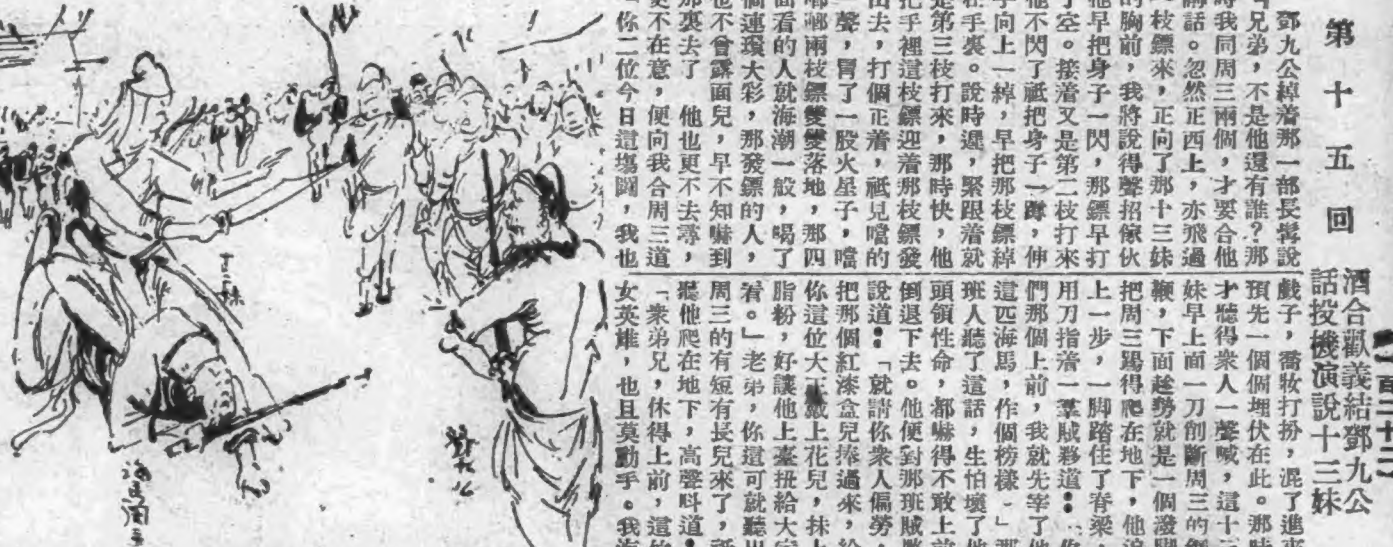 一百三十二
第十五回
酒合歡義結鄧九公
話投機演說十三妹
鄧九公綽着那一部長髯說
兄弟，不是他還有誰？那
時我同周三兩個，才要合他
講話。忽然正西上，亦飛過
一枝鏢來，正向了那十三妹
的胸前，我將說得聲招傢伙
他早把身子一閃，那鏢早打
了空。接着又是第二枝打來
他不閃了祗把身子一蹲，伸
手向上一綽，早把那枝鏢綽
在手裏。說時遲，緊跟着就
是第三枝打來，那時快，他
把手裡這枝鏢迎着那枝鏢發
出去，打個正着，祗見噹的
一聲，冒了一股火星子，噹
啷啷兩枝鏢雙雙落地，那四
面看的人就海潮一般，喝了
個連環大彩，那發鏢的人，
也不曾露面兒，早不知嚇到
那裏去了　他也更不去尋，
更不在意，便向我合周三道
「你二位今日這塲鬭，我也
戲子，喬妝打扮，混了進來
預先一個個埋伏在此。那時
才聽得衆人一聲喊，這十三
妹早上面一刀削斷周三的鋼
鞭，下面趁勢就是一個潑脚
把周三踢得爬在地下，他追
上一步，一脚踏住了脊梁，
用刀指着一羣賊夥道：「你
們那個上前，我就先宰了他
這匹海馬，作個榜樣。」那
班人聽了這話，生怕壞了他
頭領性命，都嚇得不敢上前
倒退下去。他便對那班賊夥
說道：「就請你衆人偏勞，
把那個紅漆盒兒捧過來，給
你這位大王戴上花兒，抹上
脂粉，好讓他上臺扭給大家
看。」老弟，你這可就聽出
周三的有短有長兒來了，祗
聽他爬在地下，高聲呌道：
「衆弟兄，休得上前，這
女英雄，也且莫動手。我海
十三妹
鄧九公
海馬周三